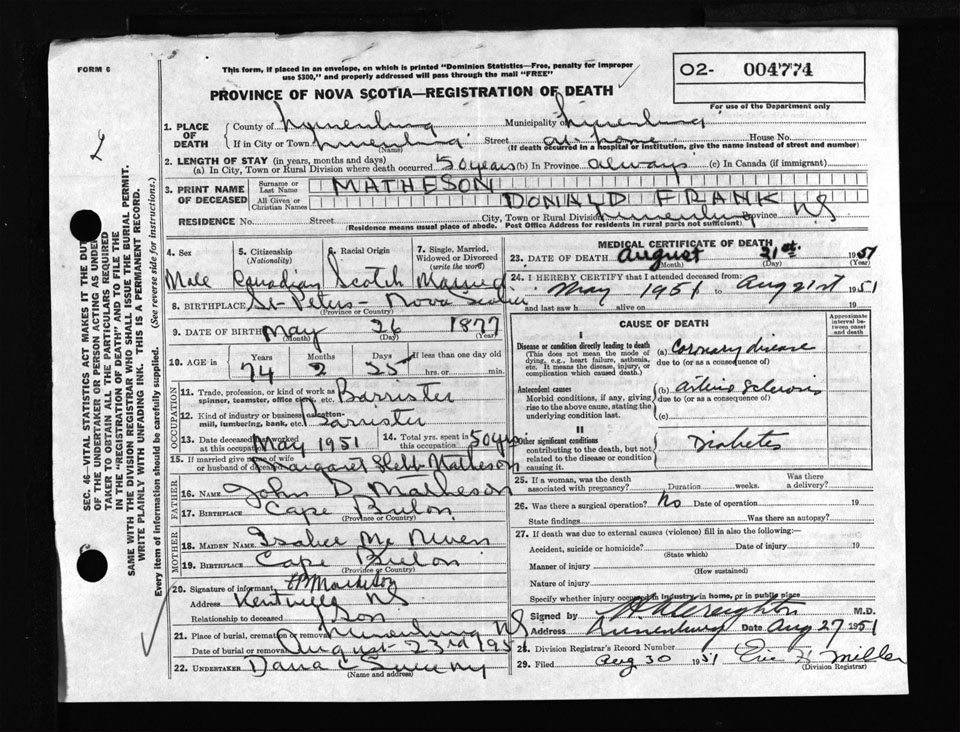 FORM 6
This form, if placed in an envelope, on which is printed "Dominion Statistics—Free, penalty for improper
use $300," and properly addressed will pass through the mail "FREE"
PROVINCE OF NOVA SCOTIA—REGISTRATION OF DEATH
O2- 004774
For use of the Department only
2
SEC. 46—VITAL STATISTICS ACT MAKES IT THE DUT
OF THE UNDERTAKER OR PERSON ACTING AS UNDER
TAKER TO OBTAIN ALL THE PARTICULARS REQUIRED
IN THE "REGISTRATION OF DEATH" AND TO FILE THE
SAME WITH THE DIVISION REGISTRAR WHO SHALL ISSUE THE BURIAL PERMIT.
WRITE PLAINLY WITH UNFADING INK. THIS IS A PERMANENT RECORD.
Every item of information should be carefully supplied. (See reverse side for instructions.)
1. PLACE OF DEATH
County of Lunenburg Municipality of Lunenburg
If in City or Town Lunenburg (Name) Street at home House No.
(If death occurred in a hospital or institution, give the name instead of street and number)
2. LENGTH OF STAY (in years, months and days)
(a) In City, Town or Rural Division where death occurred 50 years (b) In Province always (c) In Canada (if immigrant)
3. PRINT NAME OF DECEASED
Surname or Last Name MATHESON
All Given or Christian Names DONALD FRANK
RESIDENCE No. Street City, Town or Rural Division Lunenburg Province NS
(Residence means usual place of abode. Post Office Address for residents in rural parts not sufficient)
4. Sex 5. Citizenship (Nationality) 6. Racial Origin 7. Single, Married, Widowed or Divorced (write the word)
Male Canadian Scotch Married
8. BIRTHPLACE St. Peters - Nova Scotia
(Province or Country)
9. DATE OF BIRTH May 26 1877
(Month) (Day) (Year)
10. AGE in Years Months Days If less than one day old
74 2 25 hrs. or min.
OCCUPATION
11. Trade, profession, or kind of work as spinner, teamster, office clerk, etc. Barrister
12. Kind of industry or business, as cotton-mill, lumbering, bank, etc. Barrister
13. Date deceased last worked at this occupation May 1951 14. Total yrs. spent in this occupation 50 yrs.
15. If married give name of wife or husband of deceased Margaret Matheson
FATHER
16. NAME John D. Matheson
17. BIRTHPLACE Cape Breton
(Province or Country)
MOTHER
18. MAIDEN NAME Mc Niven
19. BIRTHPLACE Cape Breton
(Province or Country)
20. Signature of informant Matheson
Address Kentville NS
Relationship to deceased Son
21. Place of burial, cremation or removal Lunenburg NS
Date of burial or removal August 23rd 195
22. UNDERTAKER Dana C Sweeny
(Name and address)
MEDICAL CERTIFICATE OF DEATH
23. DATE OF DEATH August 21st. 1951
(Month) (Day) (Year)
24. I HEREBY CERTIFY that I attended deceased from:
May 1951 to Aug 21st 1951
and last saw h alive on 19
CAUSE OF DEATH
Approximate interval between onset and death
I
Disease or condition directly leading to death
(This does not mean the mode of dying, e.g., heart failure, asthenia, etc. It means the disease, injury, or complication which caused death.)
(a) Coronary disease
due to (or as a consequence of)
Antecedent causes
Morbid conditions, if any, giving rise to the above cause, stating the underlying condition last.
(b) Arterio sclerosis
due to (or as a consequence of)
(c)
II
Other significant conditions
contributing to the death, but not related to the disease or condition causing it.
Diabetes
25. If a woman, was the death associated with pregnancy? Duration weeks. Was there a delivery?
26. Was there a surgical operation? No Date of operation 19
State findings Was there an autopsy?
27. If death was due to external causes (violence) fill in also the following:
Accident, suicide or homicide? Date of injury 19
(State which)
Manner of injury
(How sustained)
Nature of injury
Specify whether injury occurred in industry, in home, or in public place
Signed by Creighton M.D.
Address Lunenburg Date Aug 27 1951
28. Division Registrar's Record Number
29. Filed Aug 30 1951 Miller
(Division Registrar)